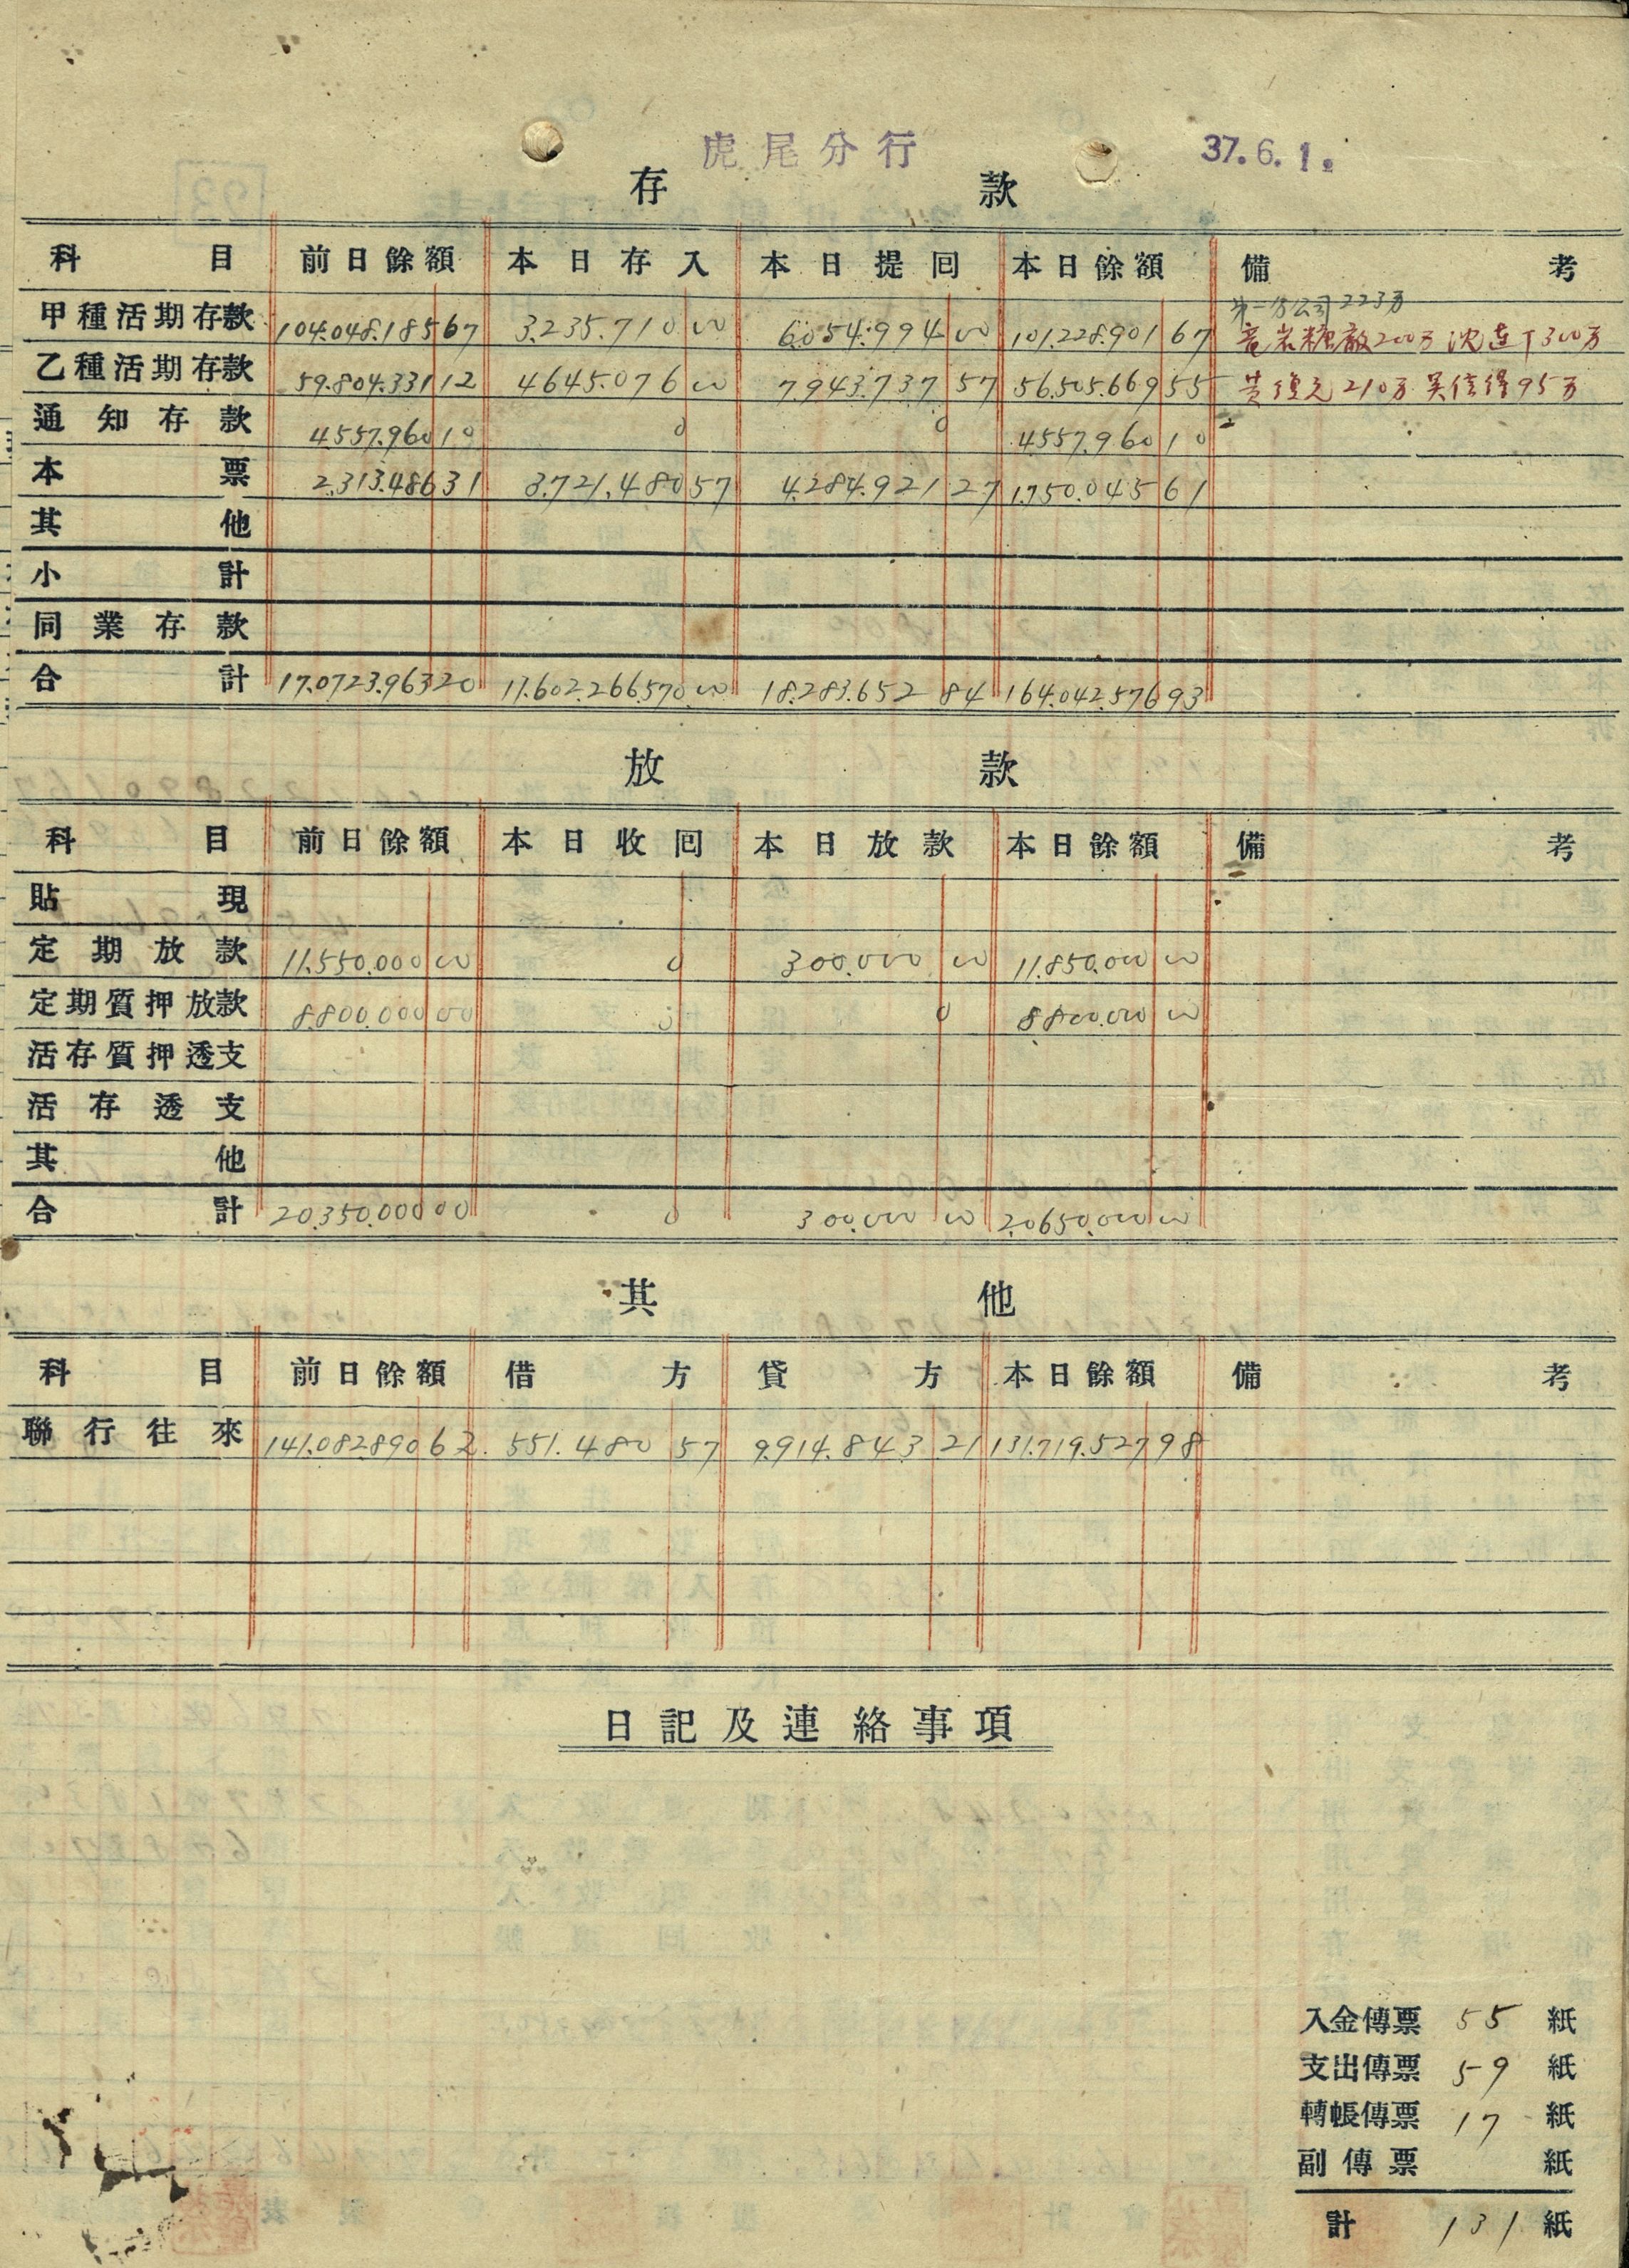 虎尾分行 37.6.1.
存款
科目 前日餘額 本日存入 本日提回 本日餘額 備考
第一分公司223万
甲種活期存款 104.048.185 67 3.235.710 00 6.054.994 00 101.228.901 67 竜岩糖廠200万 沈連丁300万
乙種活期存款 59.804.331 12 4645.076 00 7.943.737 57 56.505.669 55 210万 吳信得95万
通知存款 4557.960 10 0 0 4557.960 10
本票 2.313.486 31 3.721.480 57 4.284.921 27 1.750.045 61
其他
小計
同業存款
合計 17.0723.963 20 18.283.652 84 164.042.576 93
放款
科目 前日餘額 本日收回 本日放款 本日餘額 備考
貼現
定期放款 11.550.000 00 0 300.000 00 11.850.000 00
定期質押放款 8.800.000 00 0 0 8.800.000 00
活存質押透支
活存透支
其他
合計 20.350.000 00 0 300.000 00 20.650.000 00
其他
科目 前日餘額 借方 貸方 本日餘額 備考
聯行往來 141.082.890 62 551.480 57 9.914.843 21 131.719.527 98
日記及連絡事項
入金傳票 55 紙
支出傳票 59 紙
轉帳傳票 17 紙
副傳票 紙
計 131 紙